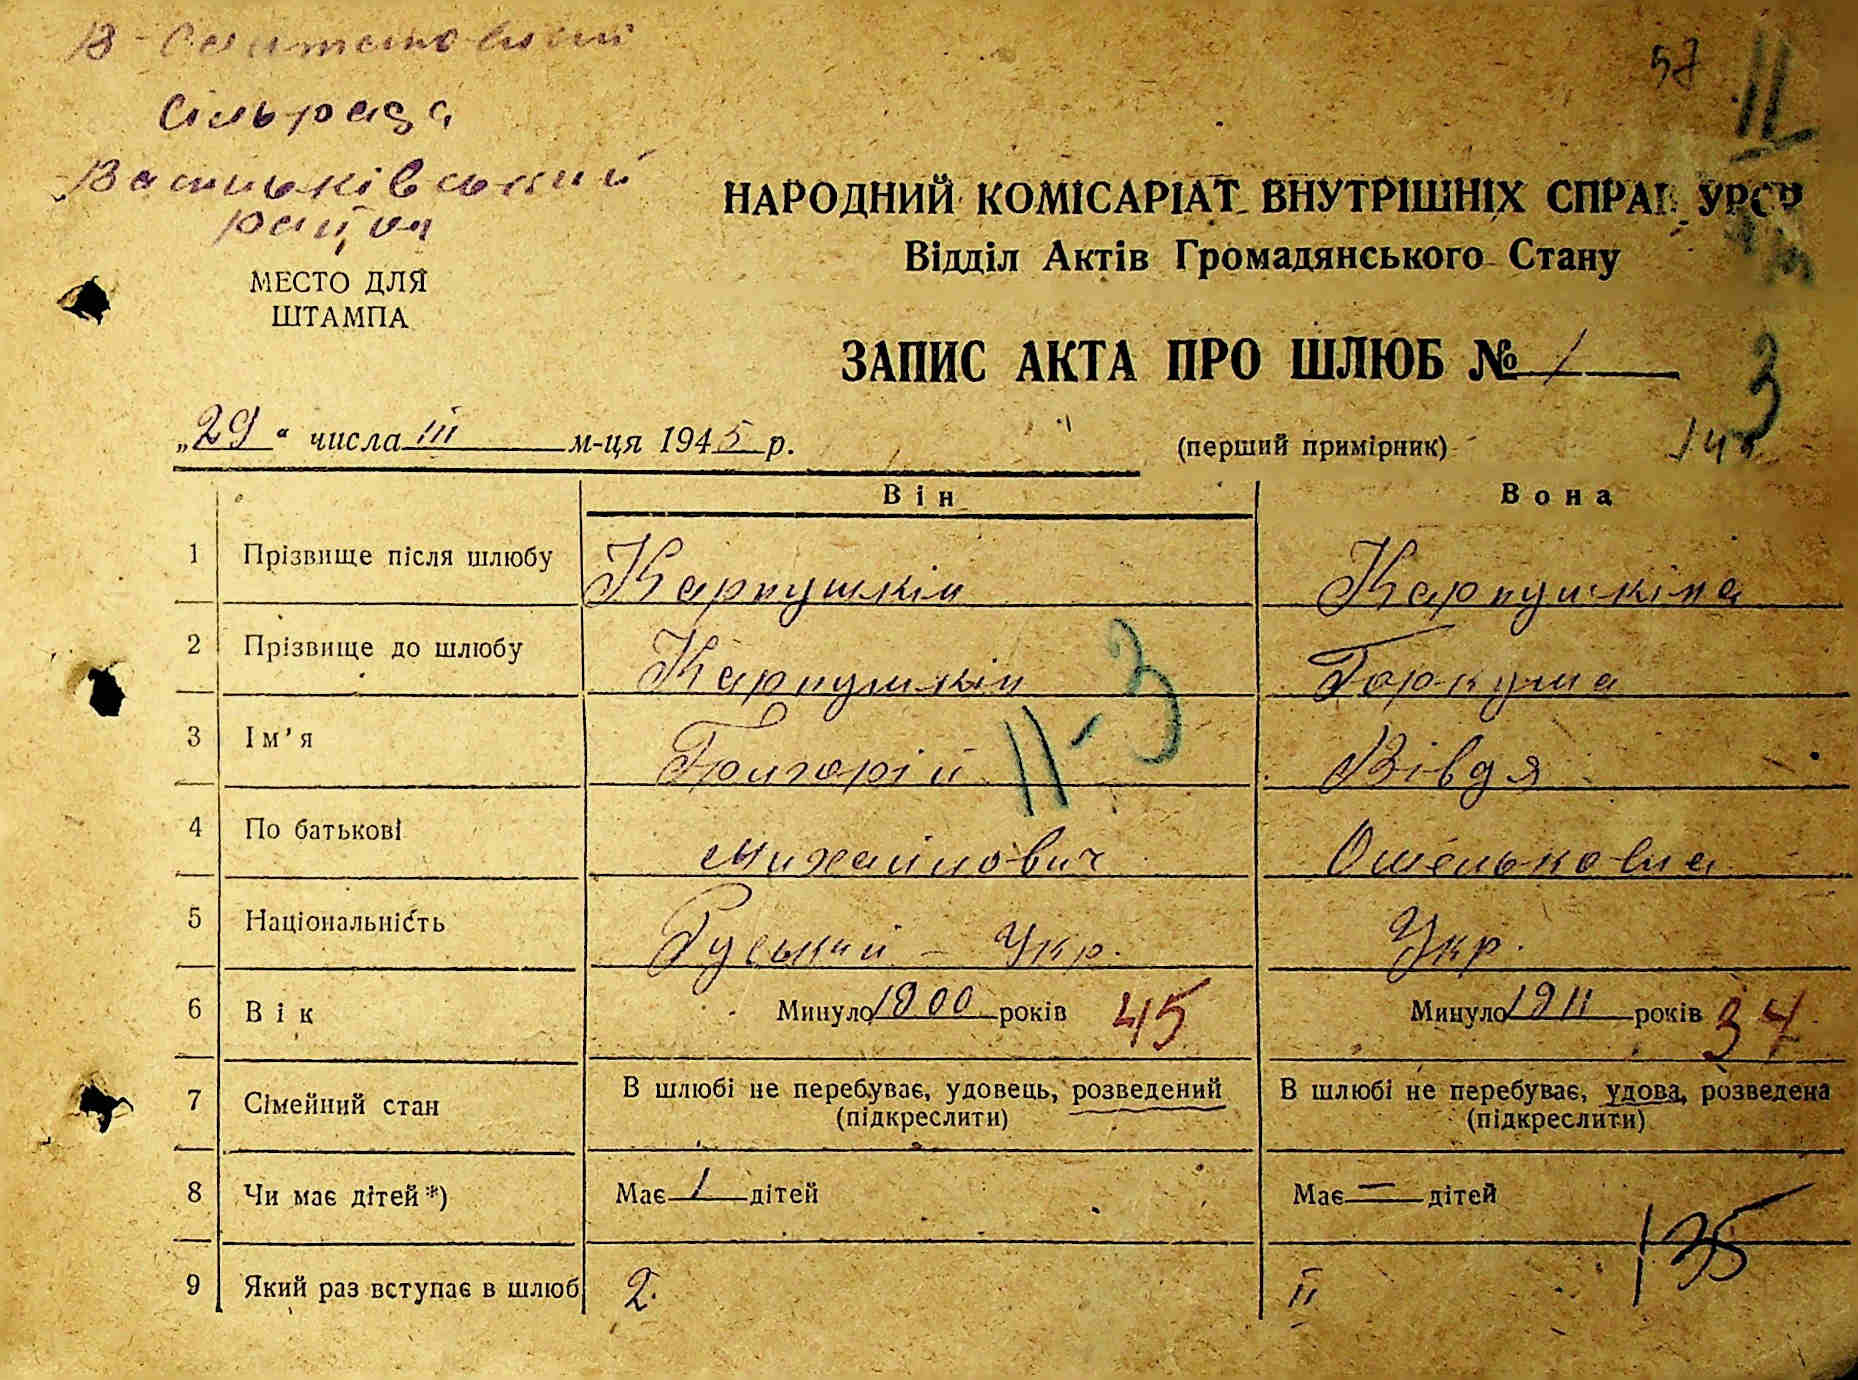 В-Солтановський
Сільрада
Васильківський
район
57 II
НАРОДНИЙ КОМІСАРІАТ ВНУТРІШНІХ СПРАВ УРСР
Відділ Актів Громадянського Стану
МЕСТО ДЛЯ
ШТАМПА
ЗАПИС АКТА ПРО ШЛЮБ № 1
3
„29“ числа III м-ця 1945 р.
(перший примірник)
Він Вона
1 Прізвище після шлюбу Карпушкін Карпушкіна
2 Прізвище до шлюбу Карпушкін Горкуша
11-3
3 Ім'я Григорій Вівдя
4 По батькові Михайлович Омельковна
5 Національність Руський - Укр. Укр.
6 Вік Минуло 1900 років 45 Минуло 1911 років 34
7 Сімейний стан В шлюбі не перебуває, удовець, розведений В шлюбі не перебуває, удова, розведена
(підкреслити) (підкреслити)
8 Чи має дітей*) Має 1 дітей Має — дітей
135
9 Який раз вступає в шлюб 2. II